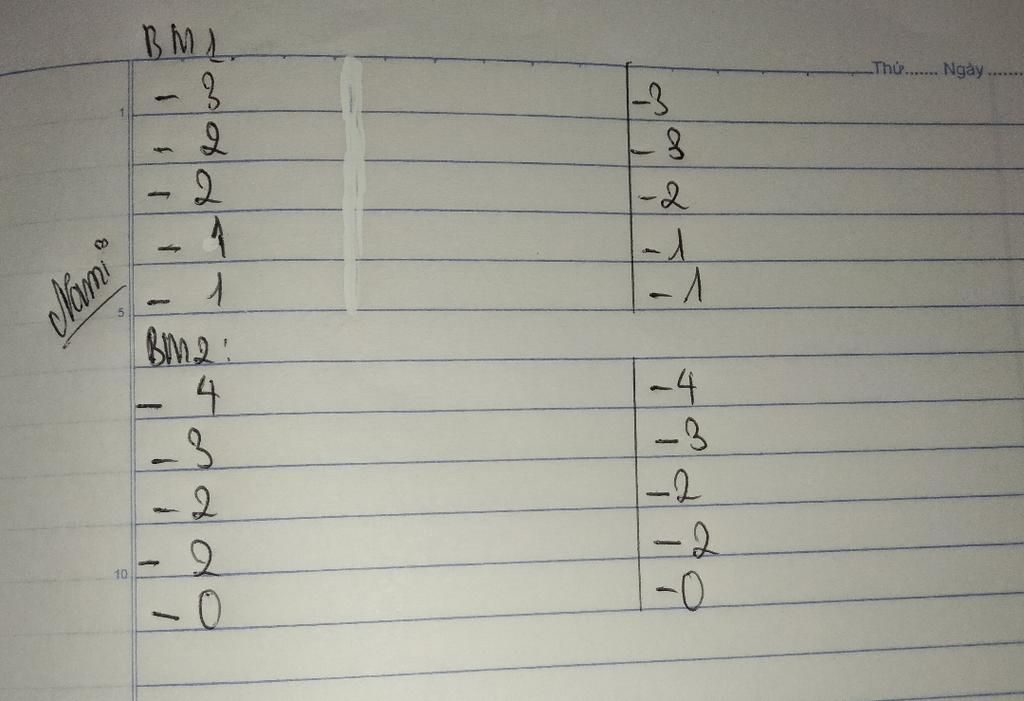 BM1
Thứ....... Ngày .......
- 3 -3
1
- 2 -3
- 2 -2
- 1 -1
- 1 -1
Nami
5
BM2:
- 4 -4
- 3 -3
- 2 -2
- 2 -2
10
- 0 -0